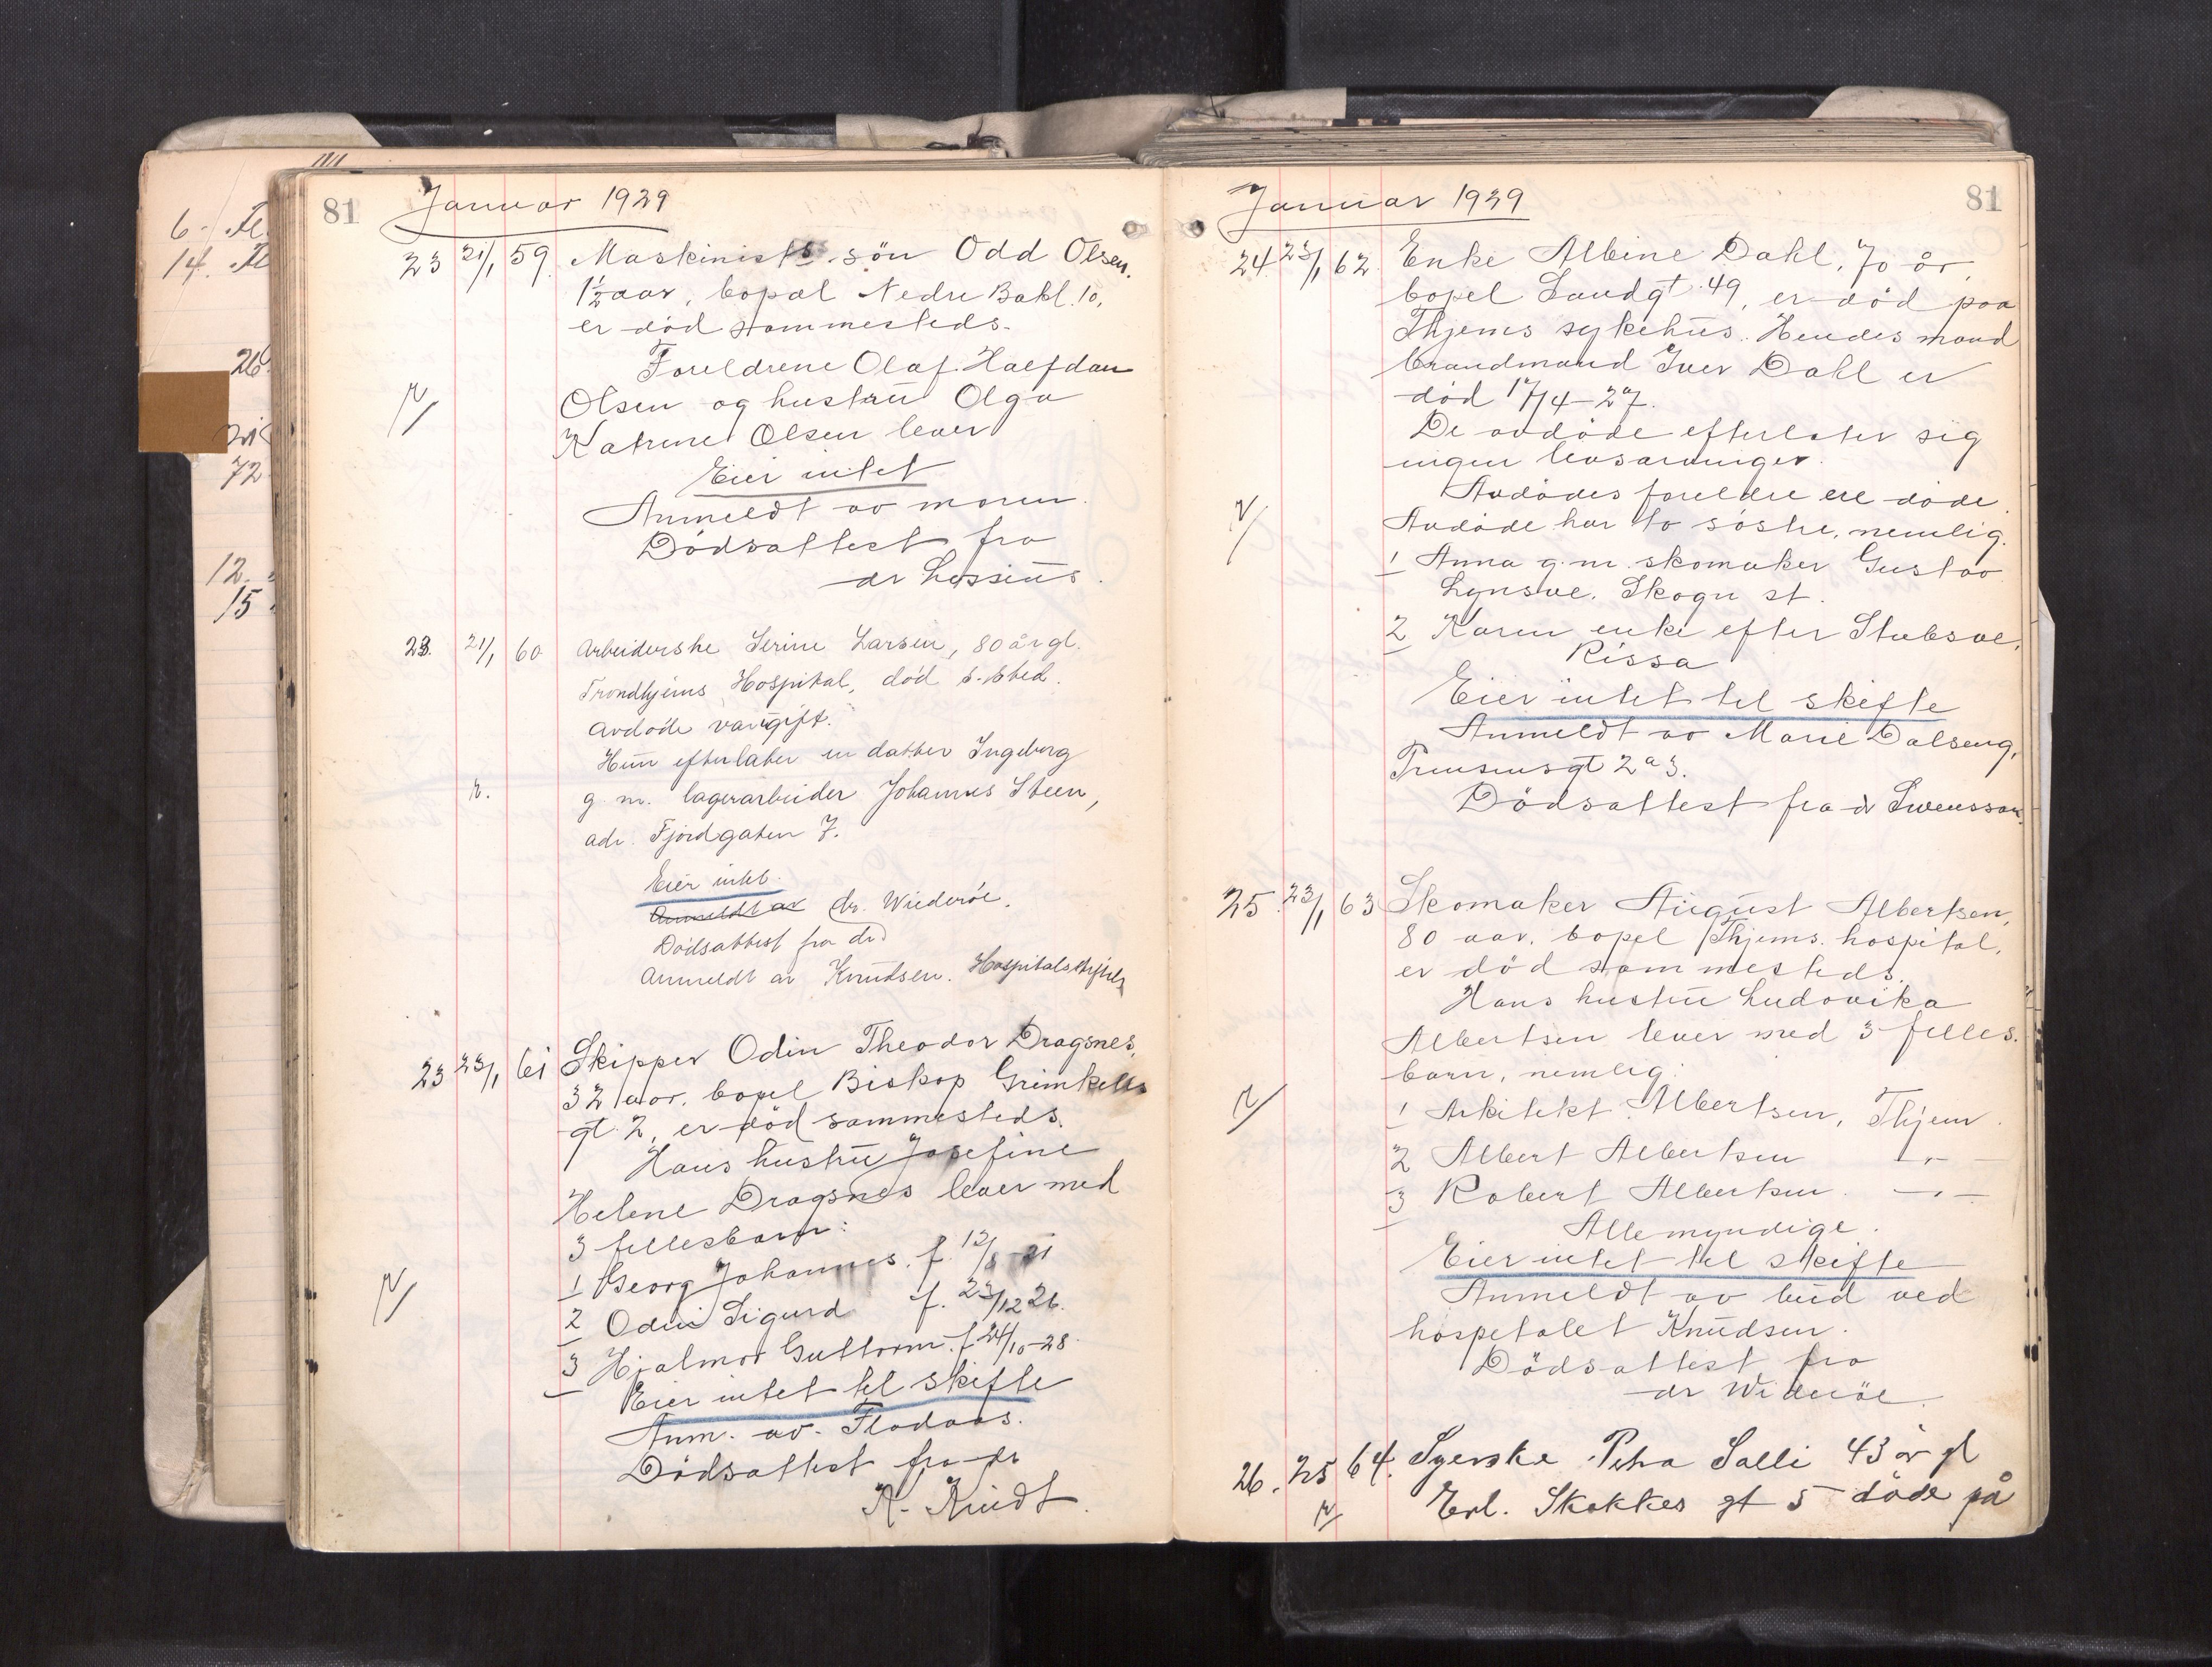 6 -
14.
26
72
12.
15
81
Januar 1929
23 21/1 59. Maskinists sön Odd Olsen,
1½ aar, bopæl Nedre Bakl. 10,
er död sammesteds.
Foreldrene Olaf Halfdan
Olsen og hustru Olga
Katrine Olsen lever
Eier intet
Anmeldt av moren.
Dödsattest fra
dr Lossius.
23. 21/1 60 Arbeiderske Serine Larsen, 80 år gl.
Trondhjems Hospital, död s. sted.
Avdöde var ugift.
Hun efterlater en datter Ingeborg
g. m. lagerarbeider Johannes Steen,
adr. Fjordgaten 7.
Eier intet.
Anmeldt av dr. Wideröe.
Dödsattest fra dr
Anmeldt av Knudsen. Hospitalsstiftelse
23 23/1 61 Skipper Odin Theodor Dragsnes,
32 aar. bopel Biskop Grimkells
gt 2, er död sammesteds.
Hans hustru Josefine
Helene Dragsnes lever med
3 fellesbarn:
1 Georg Johannes. f. 13/8-21
2 Odin Sigurd f. 23/12 26.
3 Hjalmar Guttorm. f 24/10-28.
Eier intet til skifte
Anm. av. Flodaas.
Dödsattest fra dr
K. Kindt.
Januar 1929
81
24 23/1 62. Enke Albine Dahl, 70 år,
bopel Sandgt. 49, er död paa
Thjems sykehus. Hendes mand
brandmand Iver Dahl er
död 17/4-27.
De avdöde efterlater sig
ingen livsarvinger.
Avdödes foreldre ere döde.
Avdöde har to söstre, nemlig.
1 Anna g. m. skomaker Gustav
Lynsve. Skogn st.
2 Karen enke efter Stubsve,
Rissa
Eier intet til skifte
Anmeldt av Marie Dalseng,
2a 3.
Dödsattest fra dr Swensson.
25. 23/1 63 Skomaker August Albertsen,
80 aar. bopel Thjems. hospital,
er död sammesteds.
Hans hustru Ludovika
Albertsen lever med 3 felles.
barn, nemlig:
1 Arkitekt Albertsen, Thjem.
2 Albert Albertsen -"-
3 Robert Albertsen. -"-
Alle myndige.
Eier intet til skifte
Anmeldt av bud ved
hospitalet Knudsen.
Dödsattest fra
dr Wideröe.
26. 25 64. Syerske Petra Salli 43 år gl
Erl. Skakkes gt 5 döde på